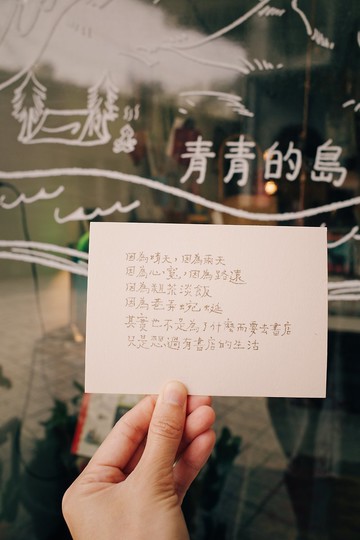 青青的島
因為晴天，因為雨天
因為心寬，因為路遠
因為粗茶淡飯
因為巷弄蜿蜒
其實也不是為了什麼而要去書店
只是想過有書店的生活